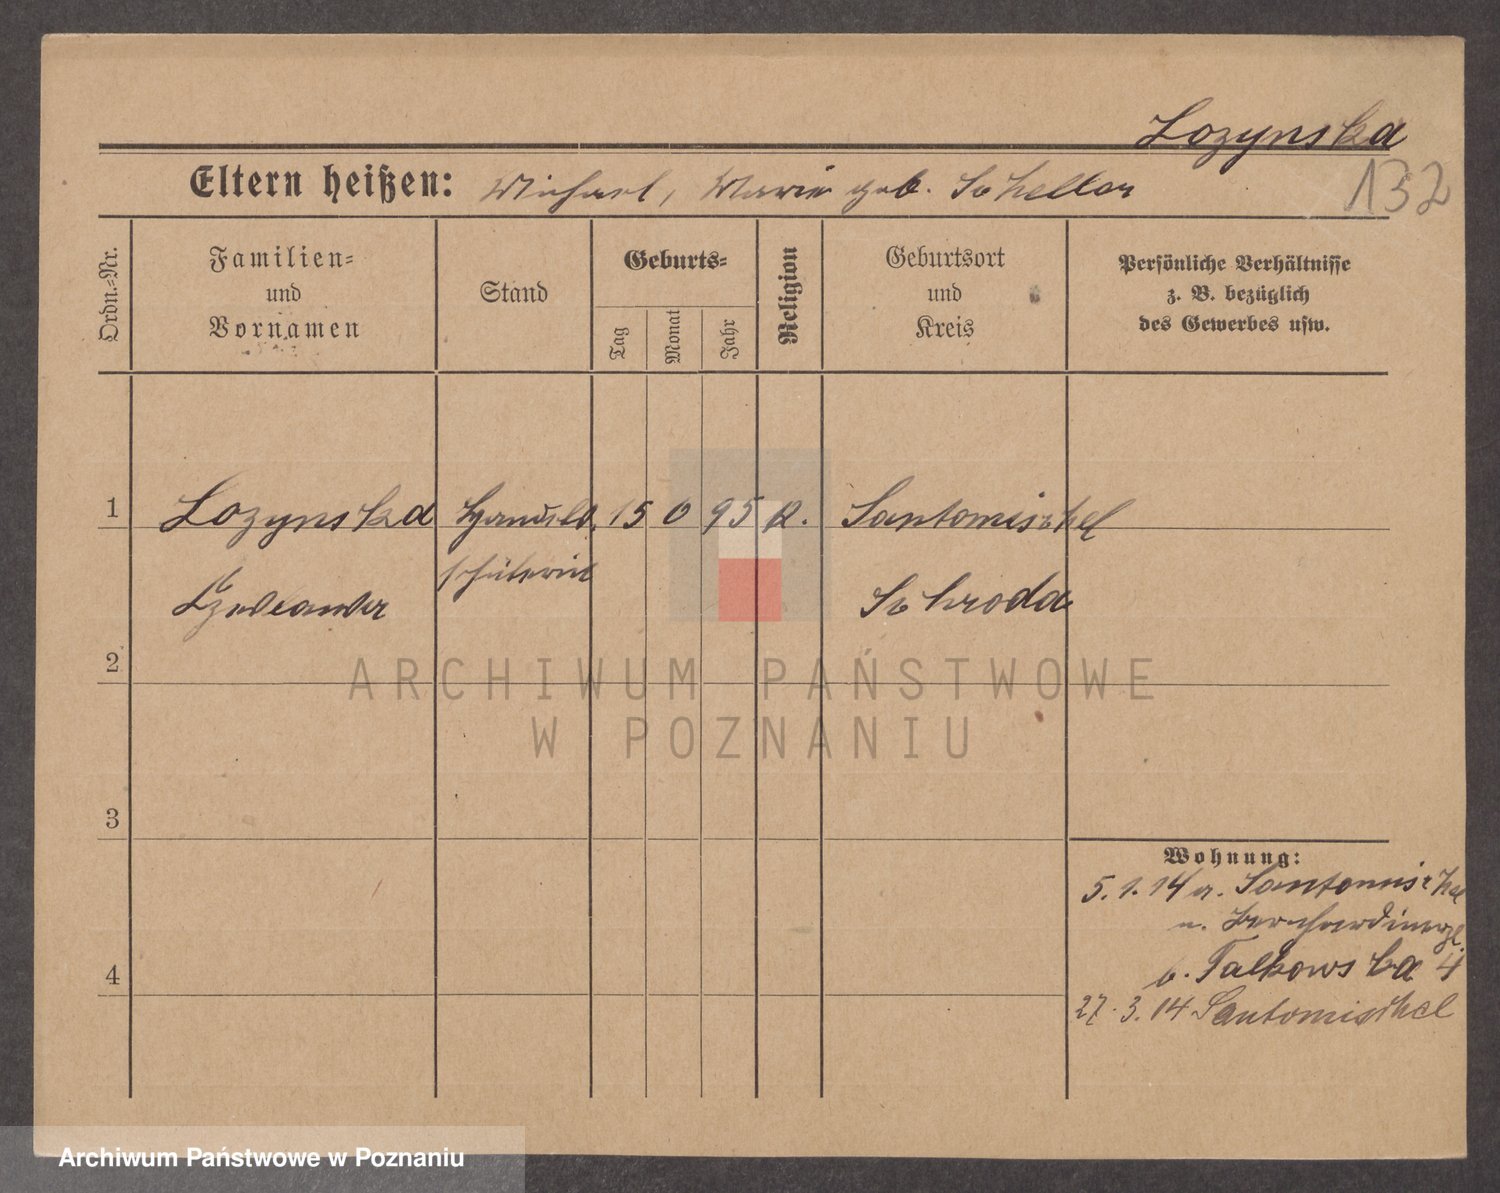 Lozynska
Eltern heißen: Michael, Marie geb. Scheller
132
Ordn.-Nr.
Familien-
und
Vornamen
Stand
Geburts-
Tag
Monat
Jahr
Religion
Geburtsort
und
Kreis
Persönliche Verhältnisse
z. B. bezüglich
des Gewerbes usw.
1 Lozynska Handels 15 6 95 k. Santomischel
schülerin
Schroda
2
ARCHIWUM PAŃSTWOWE
W POZNANIU
3
Wohnung:
5.1.14 a. Santomischel
n. Bernhardinerpl.
b. Falkowska 4
4
27.3.14 Santomischel
Archiwum Państwowe w Poznaniu